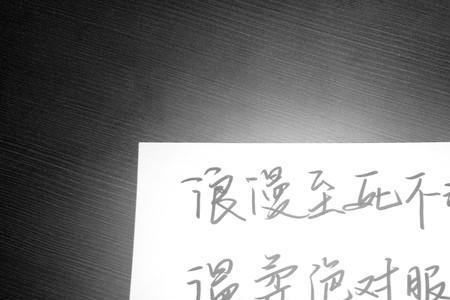 浪漫至死不
温柔绝对服